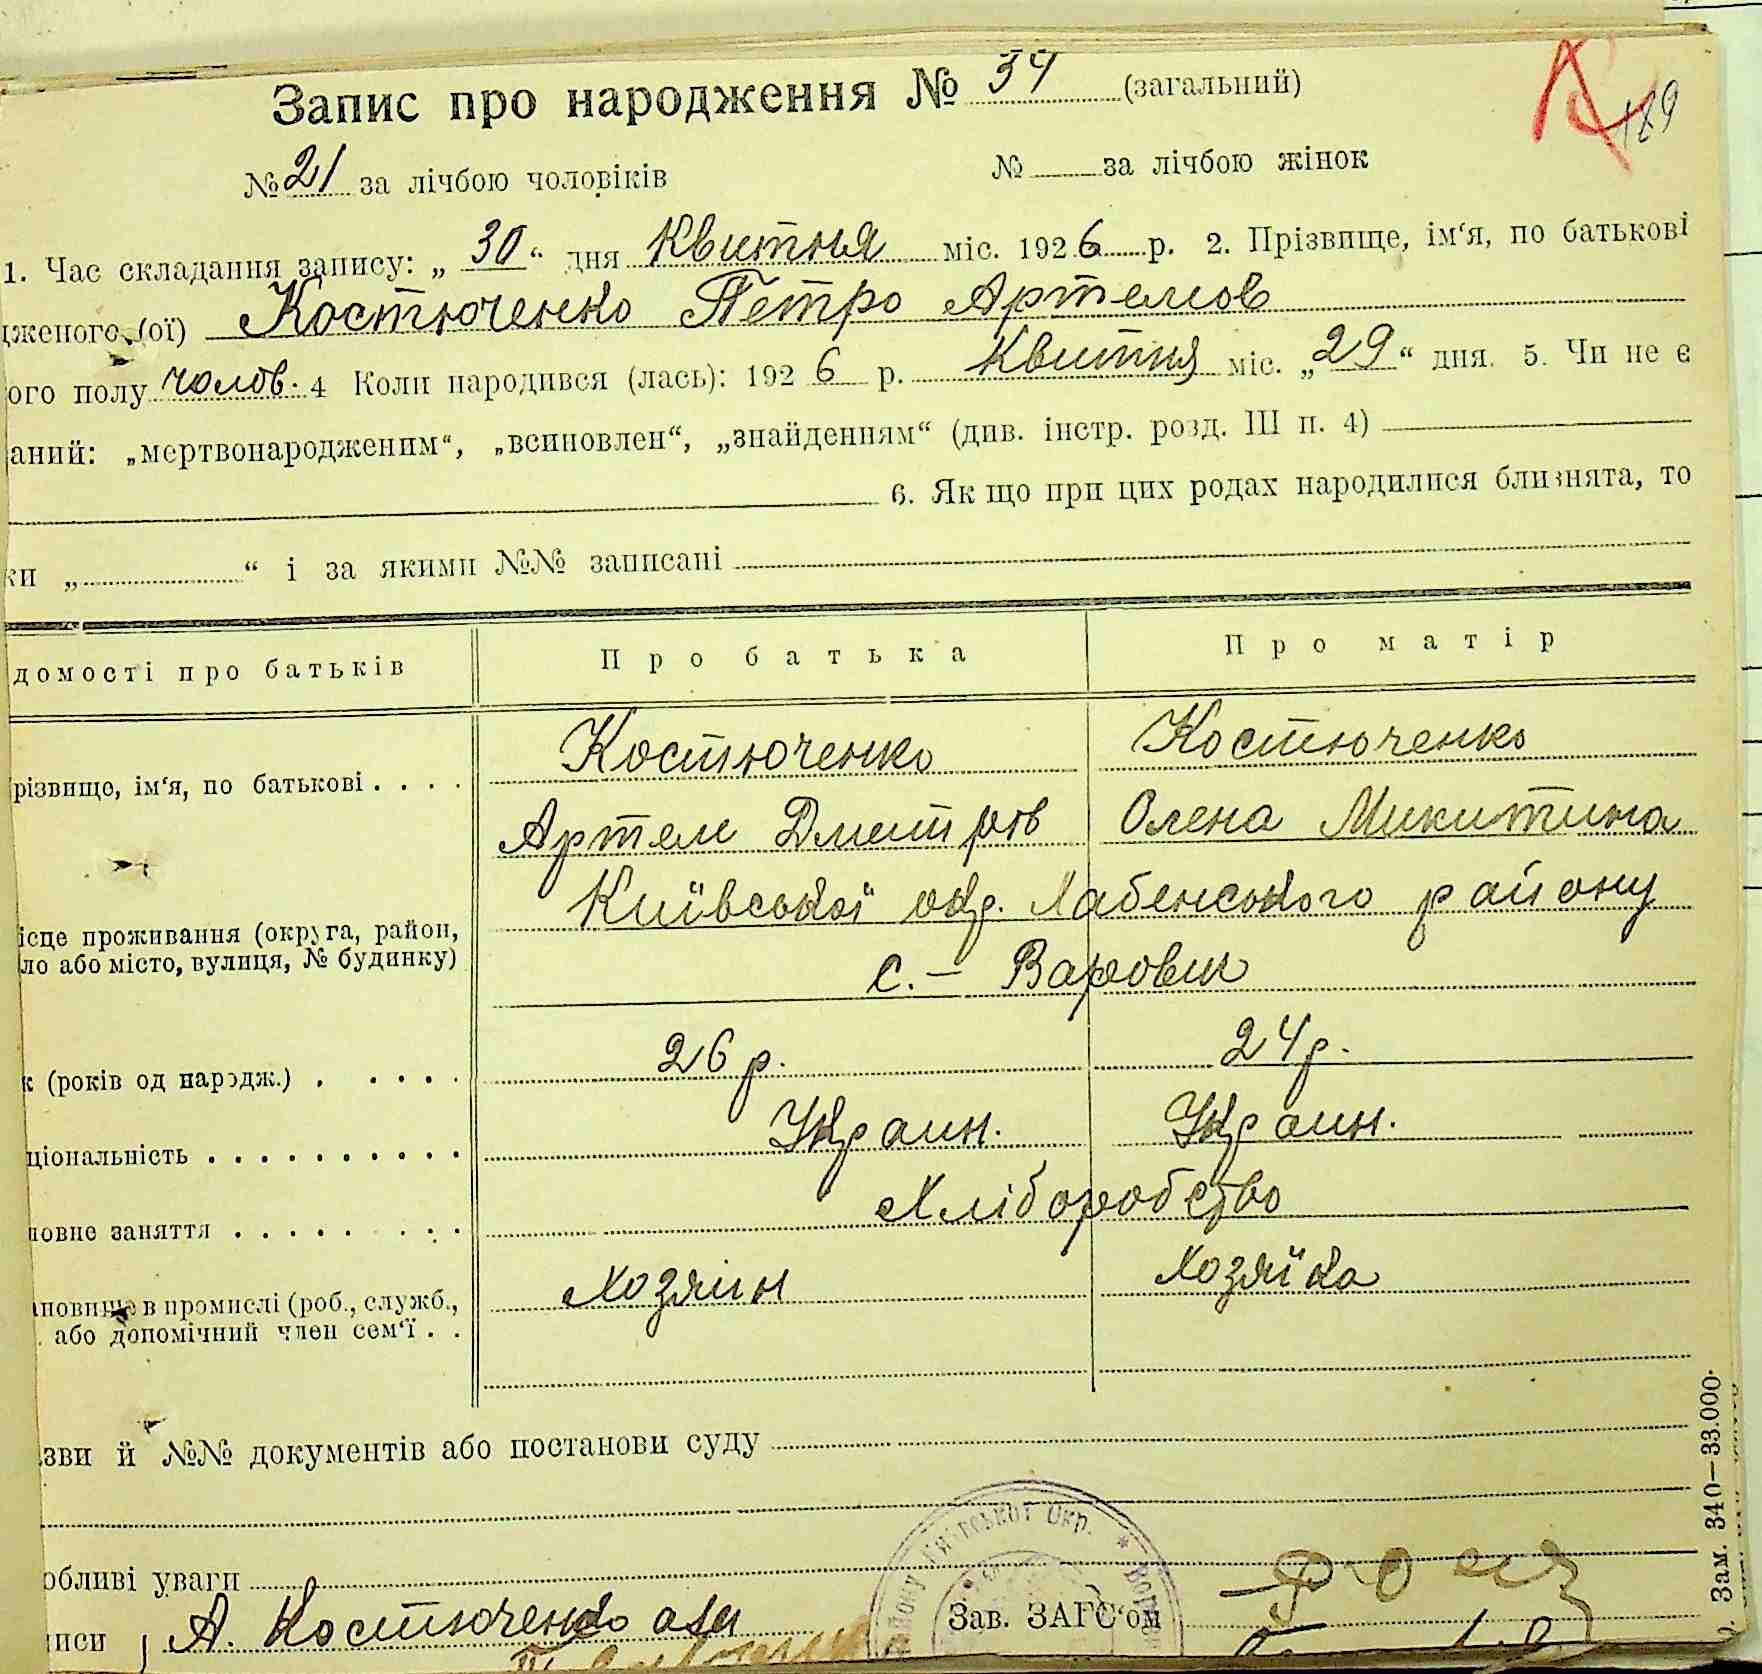 Запис про народження № 34 (загальний)
189
№ 21 за лічбою чоловіків № за лічбою жінок
1. Час складання запису: „ 30 “ дня Квитня міс. 1926 р. 2. Прізвище, ім‘я, по батькові
дженого (ої) Костюченко Петро Артемов
ого полу чолов. 4 Коли народився (лась): 1926 р. Квитня міс. „ 29 “ дня. 5. Чи не є
аний: „мертвонародженим“, „всиновлен“, „знайденням“ (див. інстр. розд. III п. 4)
6. Як що при цих родах народилися близнята, то
ки „ “ і за якими №№ записані
домості про батьків Про батька Про матір
різвище, ім‘я, по батькові . . . . Костюченко Костюченко
Артем Дмитров Олена Микитина
ісце проживання (округа, район, Київської окр. Хабенського району
ло або місто, вулиця, № будинку) с. – Варовск
к (років од народж.) . . . . . 26 р. 24 р.
ціональність . . . . . . . . . . Украин. Украин.
новне заняття . . . . . . . . Хліборобство
ановище в промислі (роб., служб., Хозяин Хозяїка
або допомічний член сем‘ї . .
зви й №№ документів або постанови суду
обливі уваги
иси А. Костюченко
Зав. ЗАГС‘ом
Київської Окр.
Зам. 340—33.000.